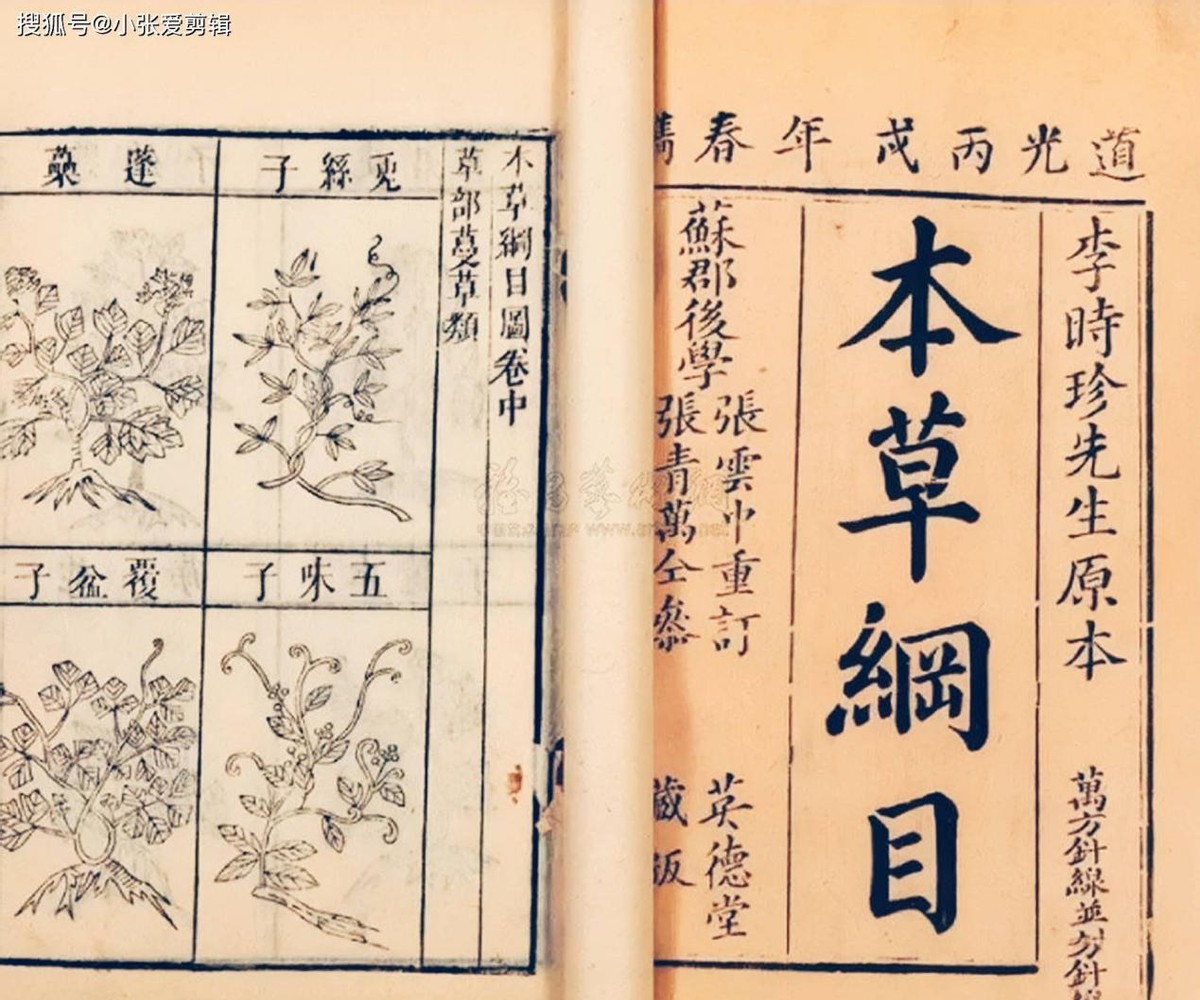 搜狐号@小张爱剪辑
道光丙戌年春鐫
李時珍先生原本
萬方針線並
本草綱目
蘇郡後學
張雲中重訂
張青萬仝參
英德堂
藏版
本草綱目圖卷中
草部蔓草類
兎絲子
蓬虆
五味子
覆盆子